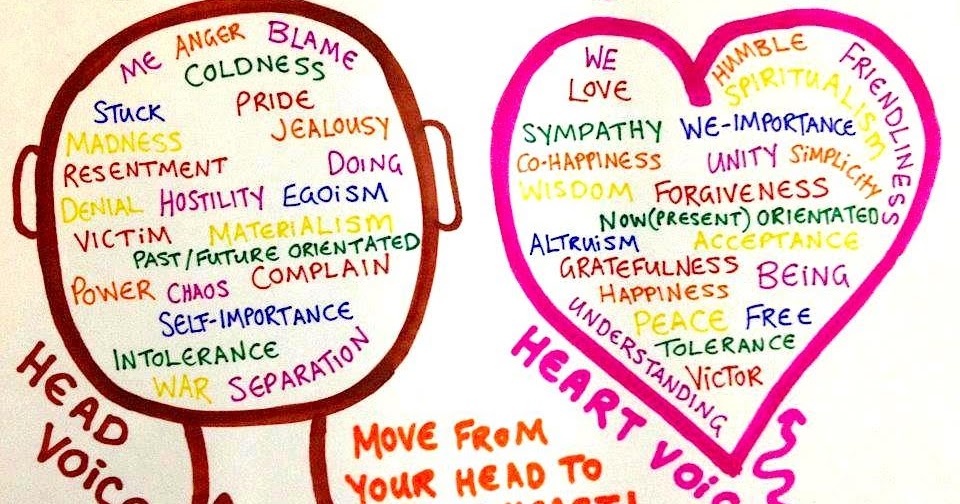 ME ANGER BLAME
COLDNESS
STUCK PRIDE
MADNESS JEALOUSY
RESENTMENT DOING
DENIAL HOSTILITY EGOISM
VICTIM MATERIALISM
PAST/FUTURE ORIENTATED
POWER CHAOS COMPLAIN
SELF-IMPORTANCE
INTOLERANCE
WAR SEPARATION
HEAD
WE HUMBLE FRIENDLINESS
LOVE SPIRITUALISM
SYMPATHY WE-IMPORTANCE
CO-HAPPINESS UNITY SIMPLICITY
WISDOM FORGIVENESS
NOW(PRESENT) ORIENTATED
ALTRUISM ACCEPTANCE
GRATEFULNESS BEING
HAPPINESS
UNDERSTANDING PEACE FREE
TOLERANCE
VICTOR
HEART
MOVE FROM
YOUR HEAD TO